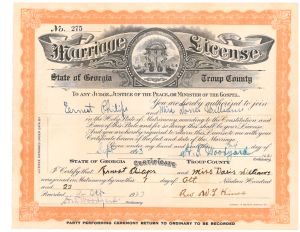 No. 275
Marriage License
State of Georgia Troup County
TO ANY JUDGE, JUSTICE OF THE PEACE, OR MINISTER OF THE GOSPEL.
You are hereby authorized to join
Ernest Philips and Miss
in the Holy State of Matrimony according to the Constitution and
Laws of this State and for so doing this shall be your License.
And you are hereby required to return this License to me with your
Certificate hereon of the fact and date of the Marriage.
STATE OF GEORGIA Certificate TROUP COUNTY
I Certify that Ernest Philips and Miss Williams
were joined in Matrimony by me this 7 day of Oct Nineteen Hundred
and 23
Recorded Oct Rev. W.T.
PARTY PERFORMING CEREMONY RETURN TO ORDINARY TO BE RECORDED